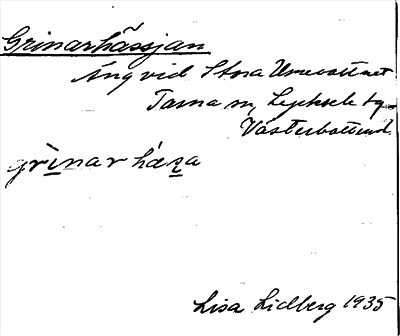 Grinarhässjan
Äng vid Stora Umevattnet
Tärna sn, Lycksele tg
Västerbottens l.
grìnarhæṣa
Lisa Lidberg 1935